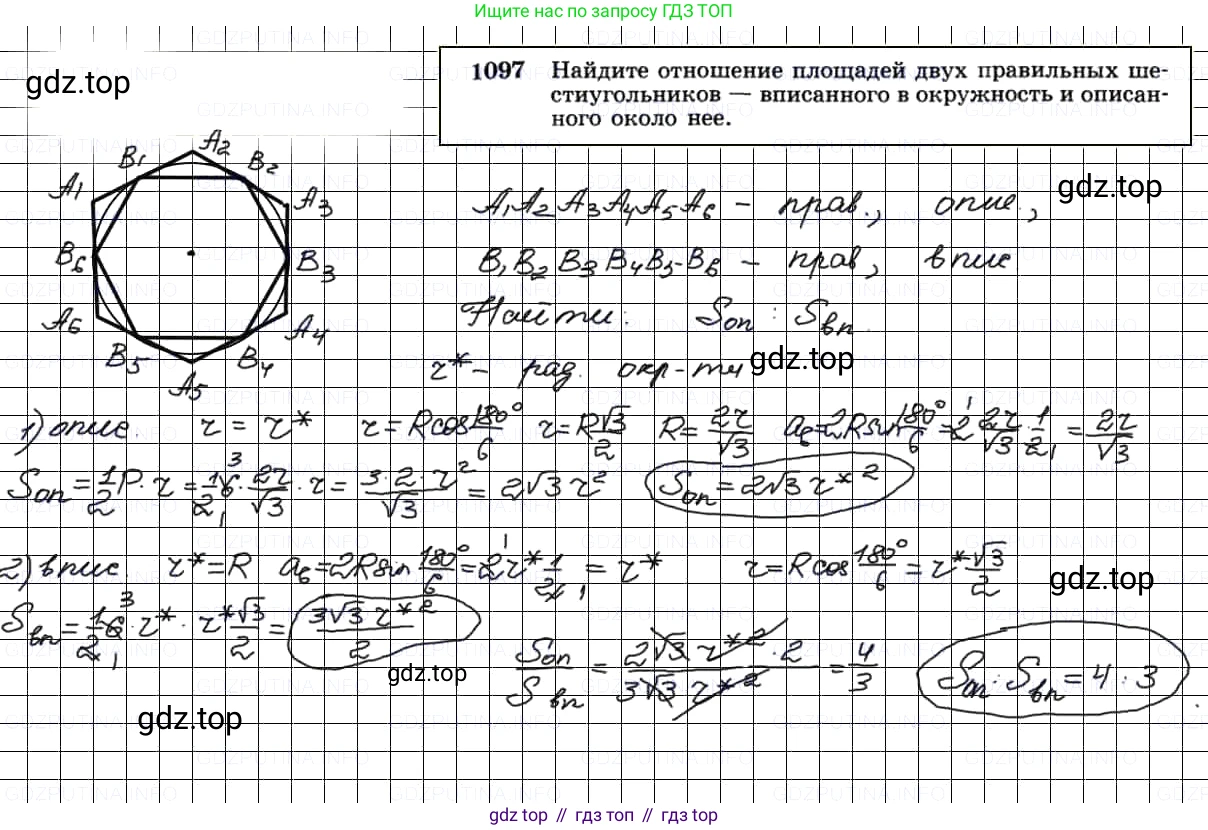 Ищите нас по запросу ГДЗ ТОП
1097 Найдите отношение площадей двух правильных ше-
стиугольников — вписанного в окружность и описан-
ного около нее.
gdz.top
A1 B1 A2 B2 A3
B6 B3
A6 B5 A5 B4 A4
A1A2A3A4A5A6 - прав., опис.,
gdz.top
B1B2B3B4B5B6 - прав, впис
Найти: Sоп : Sвп.
r* - рад. окр-ти
gdz.top
1) опис. r = r* r = Rcos 180°/6 r = R√3/2 R = 2r/√3 a6 = 2Rsin 180°/6 = 2 2r/√3 · 1/2 = 2r/√3
Sоп = 1/2 P · r = 1/2 · 6 · 2r/√3 · r = 3·2·r²/√3 = 2√3 r² Sоп = 2√3 r*²
2) впис. r* = R a6 = 2Rsin 180°/6 = 2r* 1/2 = r* r = Rcos 180°/6 = r* √3/2
gdz.top
Sвп = 1/2 · 6 · r* · r* √3/2 = 3√3 · r*²/2
gdz.top
Sоп/Sвп = 2√3 r*² · 2/3√3 r*² = 4/3 Sоп : Sвп = 4 : 3
gdz.top
gdz top // гдз топ // gdz.top